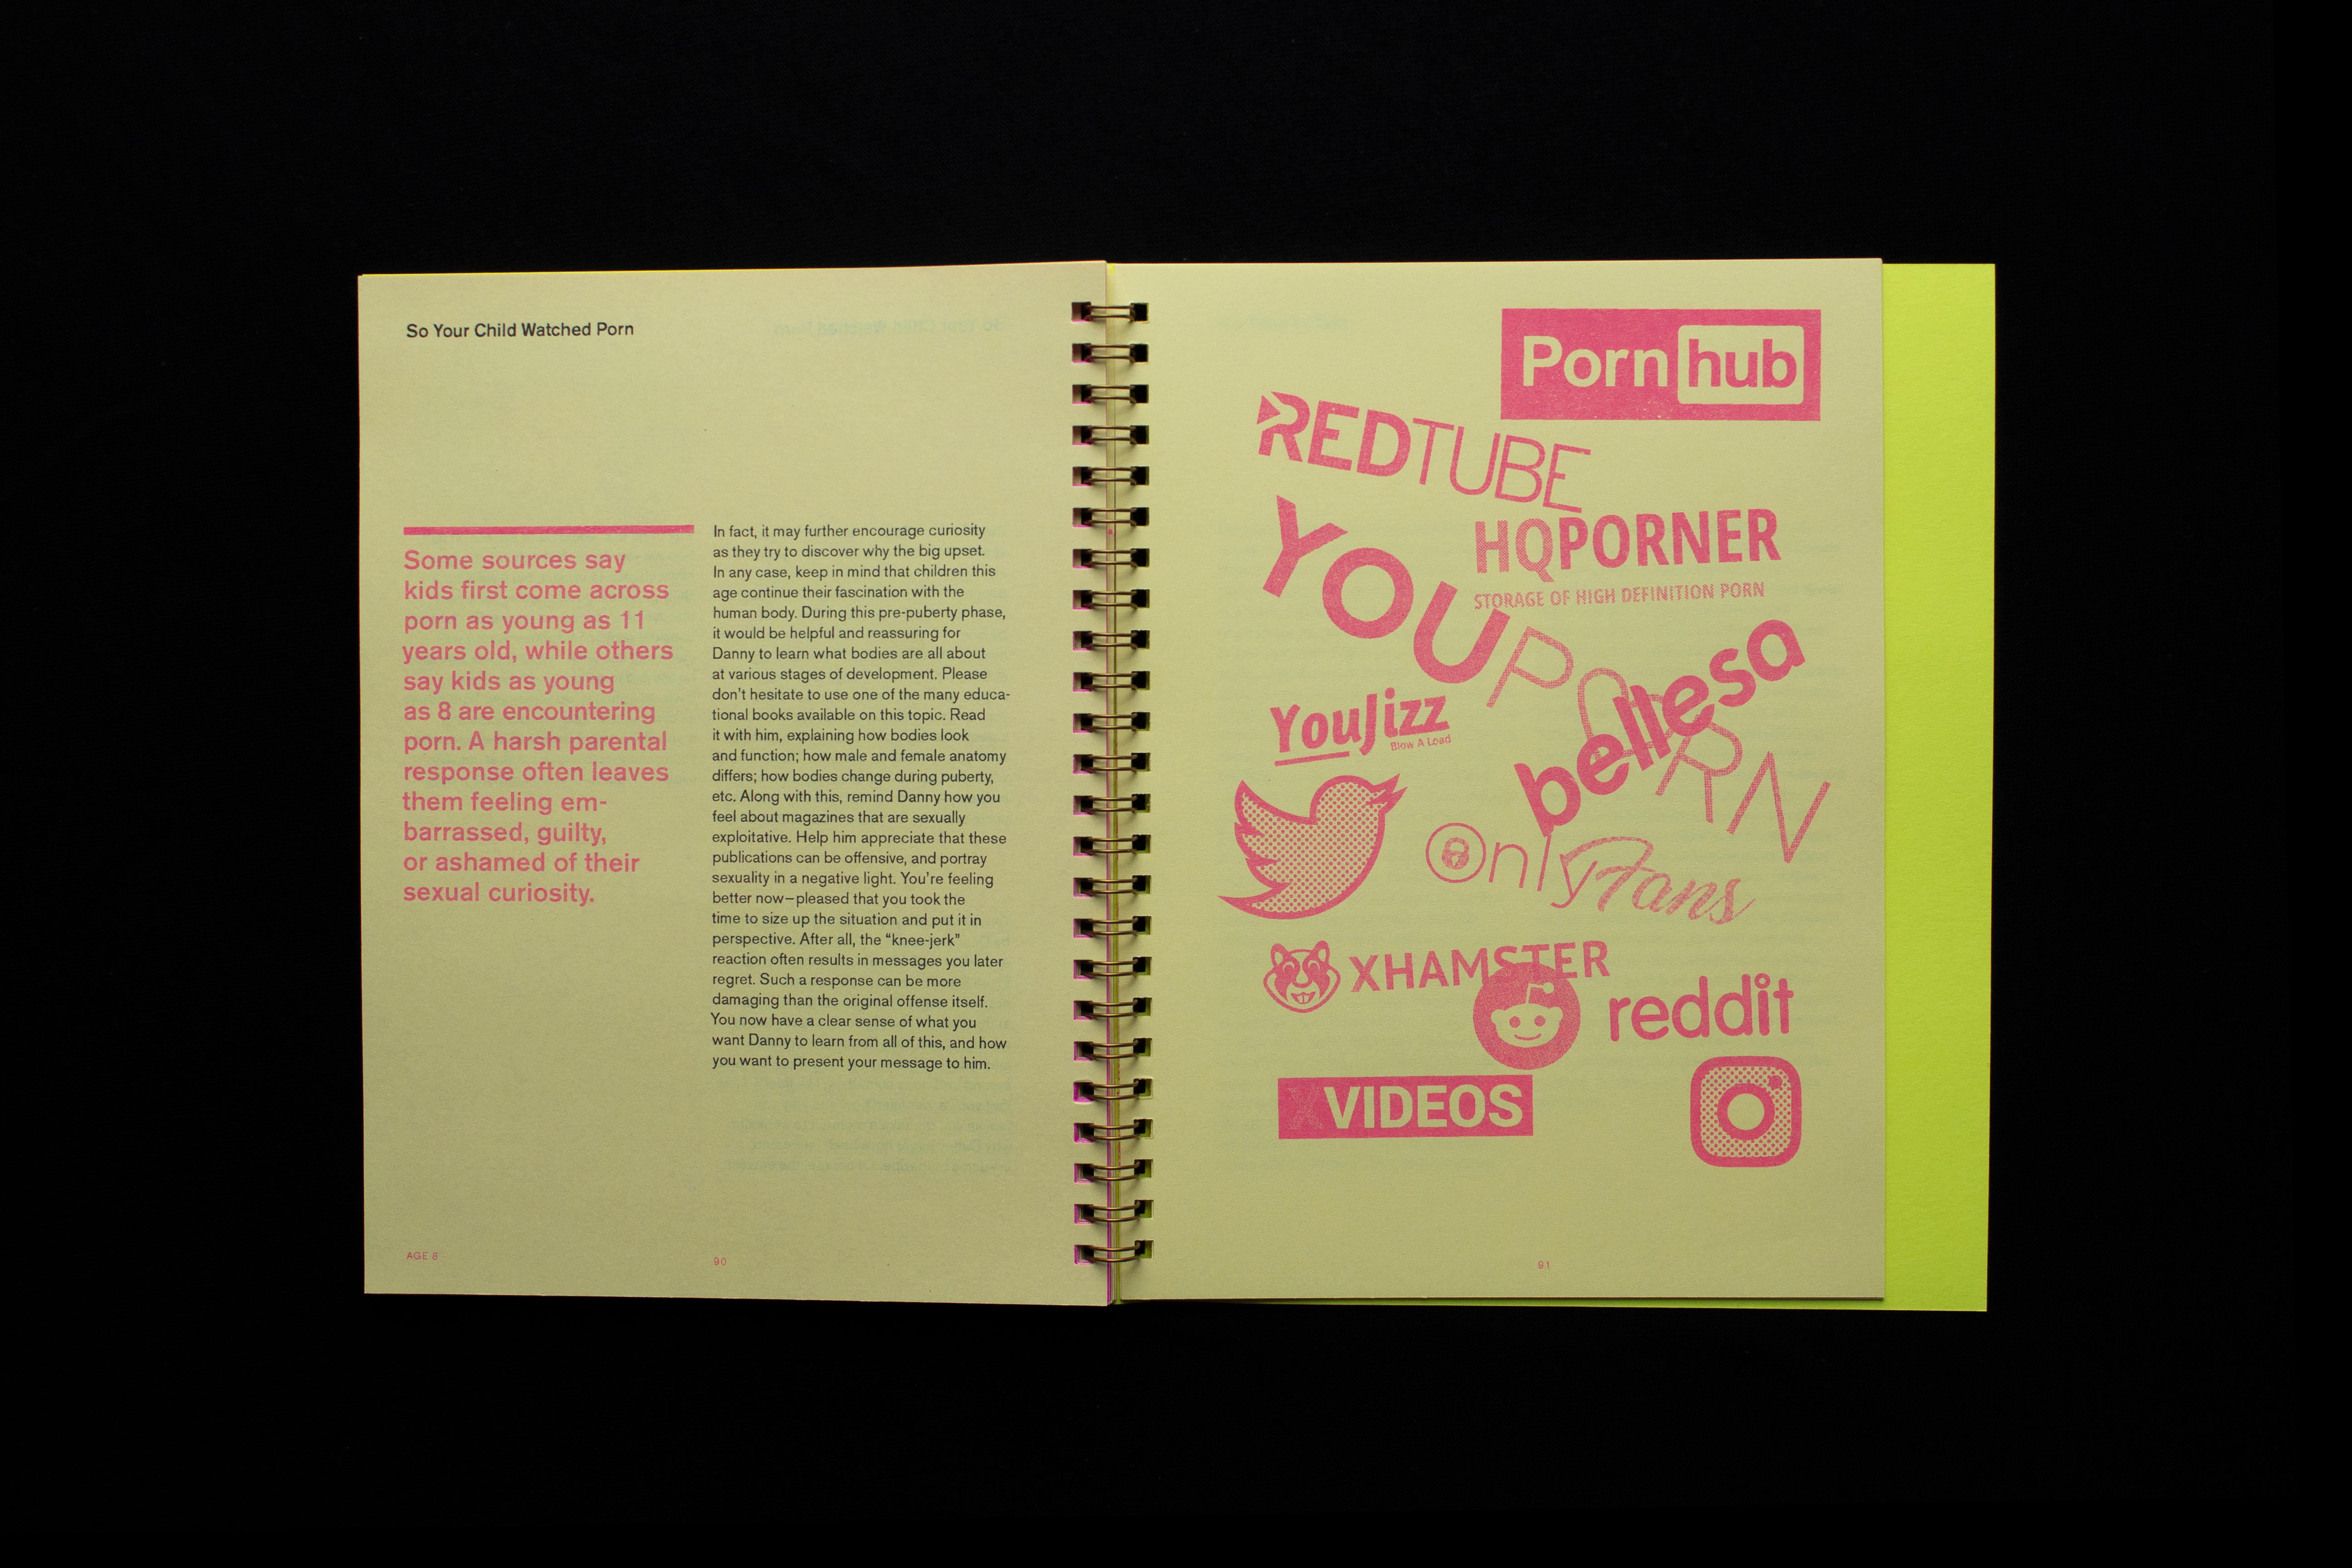 So Your Child Watched Porn
Some sources say
kids first come across
porn as young as 11
years old, while others
say kids as young
as 8 are encountering
porn. A harsh parental
response often leaves
them feeling em-
barrassed, guilty,
or ashamed of their
sexual curiosity.
In fact, it may further encourage curiosity
as they try to discover why the big upset.
In any case, keep in mind that children this
age continue their fascination with the
human body. During this pre-puberty phase,
it would be helpful and reassuring for
Danny to learn what bodies are all about
at various stages of development. Please
don't hesitate to use one of the many educa-
tional books available on this topic. Read
it with him, explaining how bodies look
and function; how male and female anatomy
differs; how bodies change during puberty,
etc. Along with this, remind Danny how you
feel about magazines that are sexually
exploitative. Help him appreciate that these
publications can be offensive, and portray
sexuality in a negative light. You're feeling
better now—pleased that you took the
time to size up the situation and put it in
perspective. After all, the “knee-jerk”
reaction often results in messages you later
regret. Such a response can be more
damaging than the original offense itself.
You now have a clear sense of what you
want Danny to learn from all of this, and how
you want to present your message to him.
AGE 8
90
Pornhub
REDTUBE
HQPORNER
STORAGE OF HIGH DEFINITION PORN
YOUPORN
bellesa
YouJizz
Blow A Load
OnlyFans
XHAMSTER
reddit
XVIDEOS
91